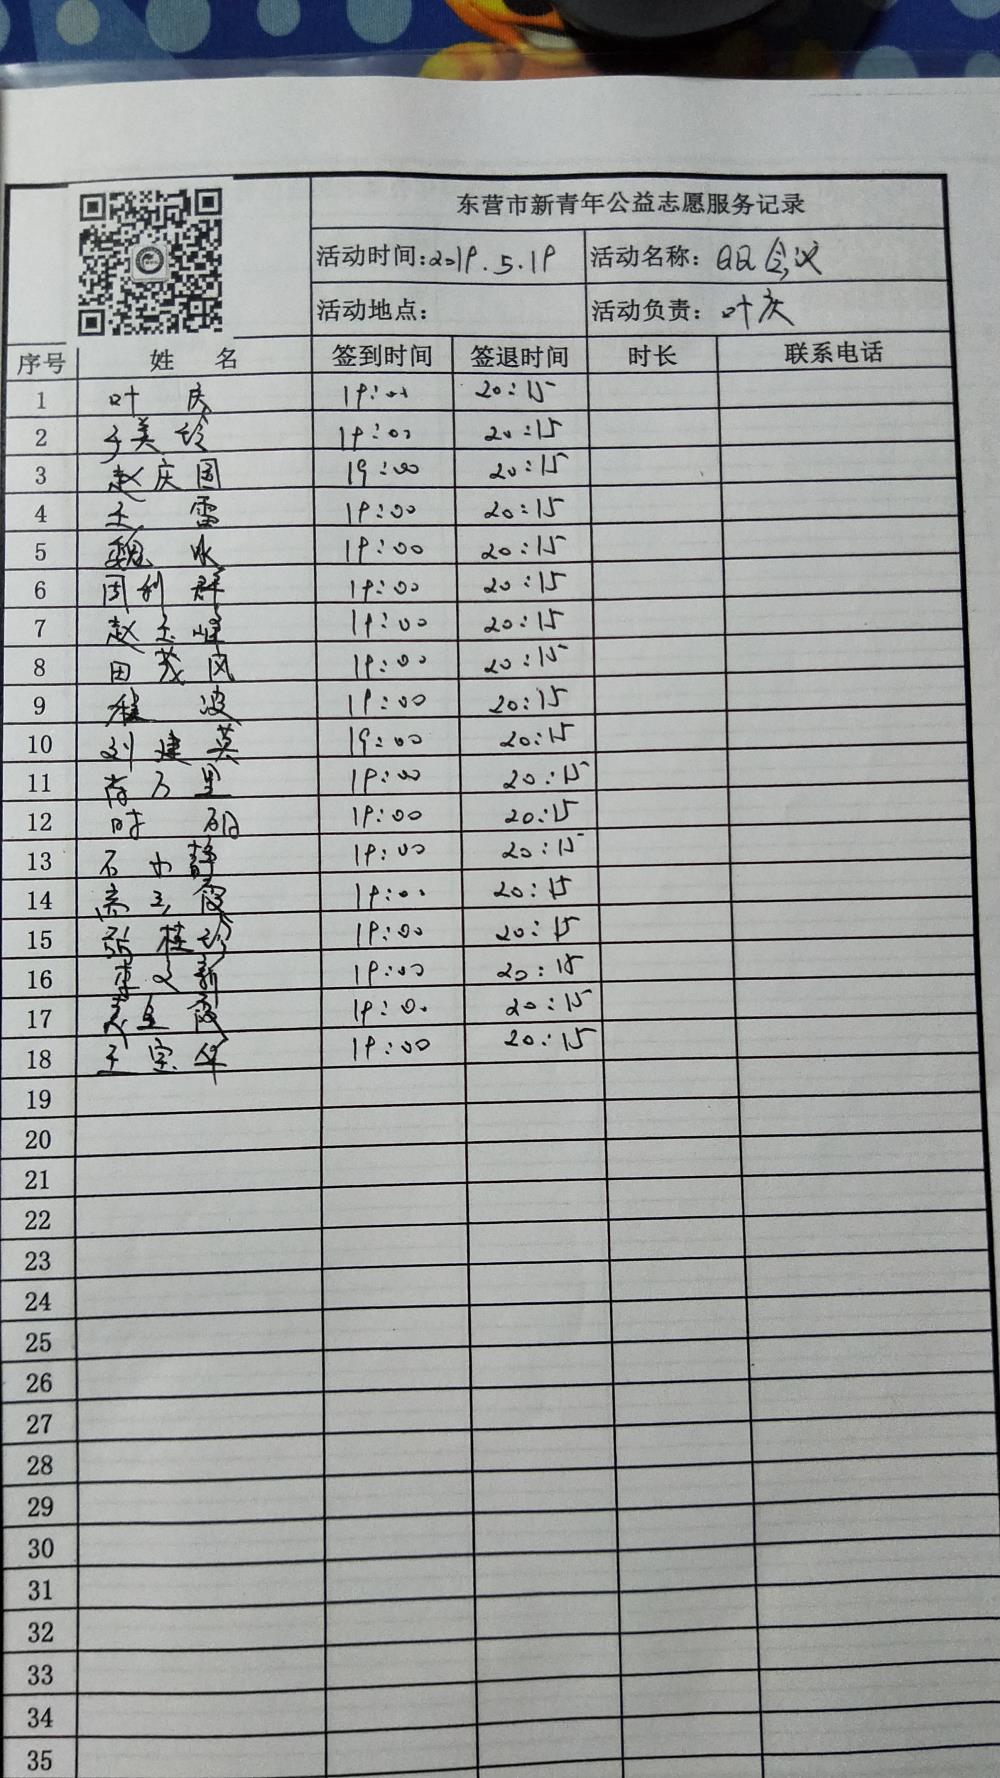 东营市新青年公益志愿服务记录
活动时间:2019.5.19 活动名称:QQ会议
活动地点: 活动负责:叶庆
序号 姓名 签到时间 签退时间 时长 联系电话
1 叶庆 19:00 20:15
2 于美玲 19:00 20:15
3 赵庆国 19:00 20:15
4 王雷 19:00 20:15
5 魏水 19:00 20:15
6 周利群 19:00 20:15
7 赵玉峰 19:00 20:15
8 田茂风 19:00 20:15
9 程波 19:00 20:15
10 刘建英 19:00 20:15
11 万里 19:00 20:15
12 时 19:00 20:15
13 石静 19:00 20:15
14 高玉霞 19:00 20:15
15 桂 19:00 20:15
16 李文新 19:00 20:15
17 霞 19:00 20:15
18 王宗华 19:00 20:15
19
20
21
22
23
24
25
26
27
28
29
30
31
32
33
34
35